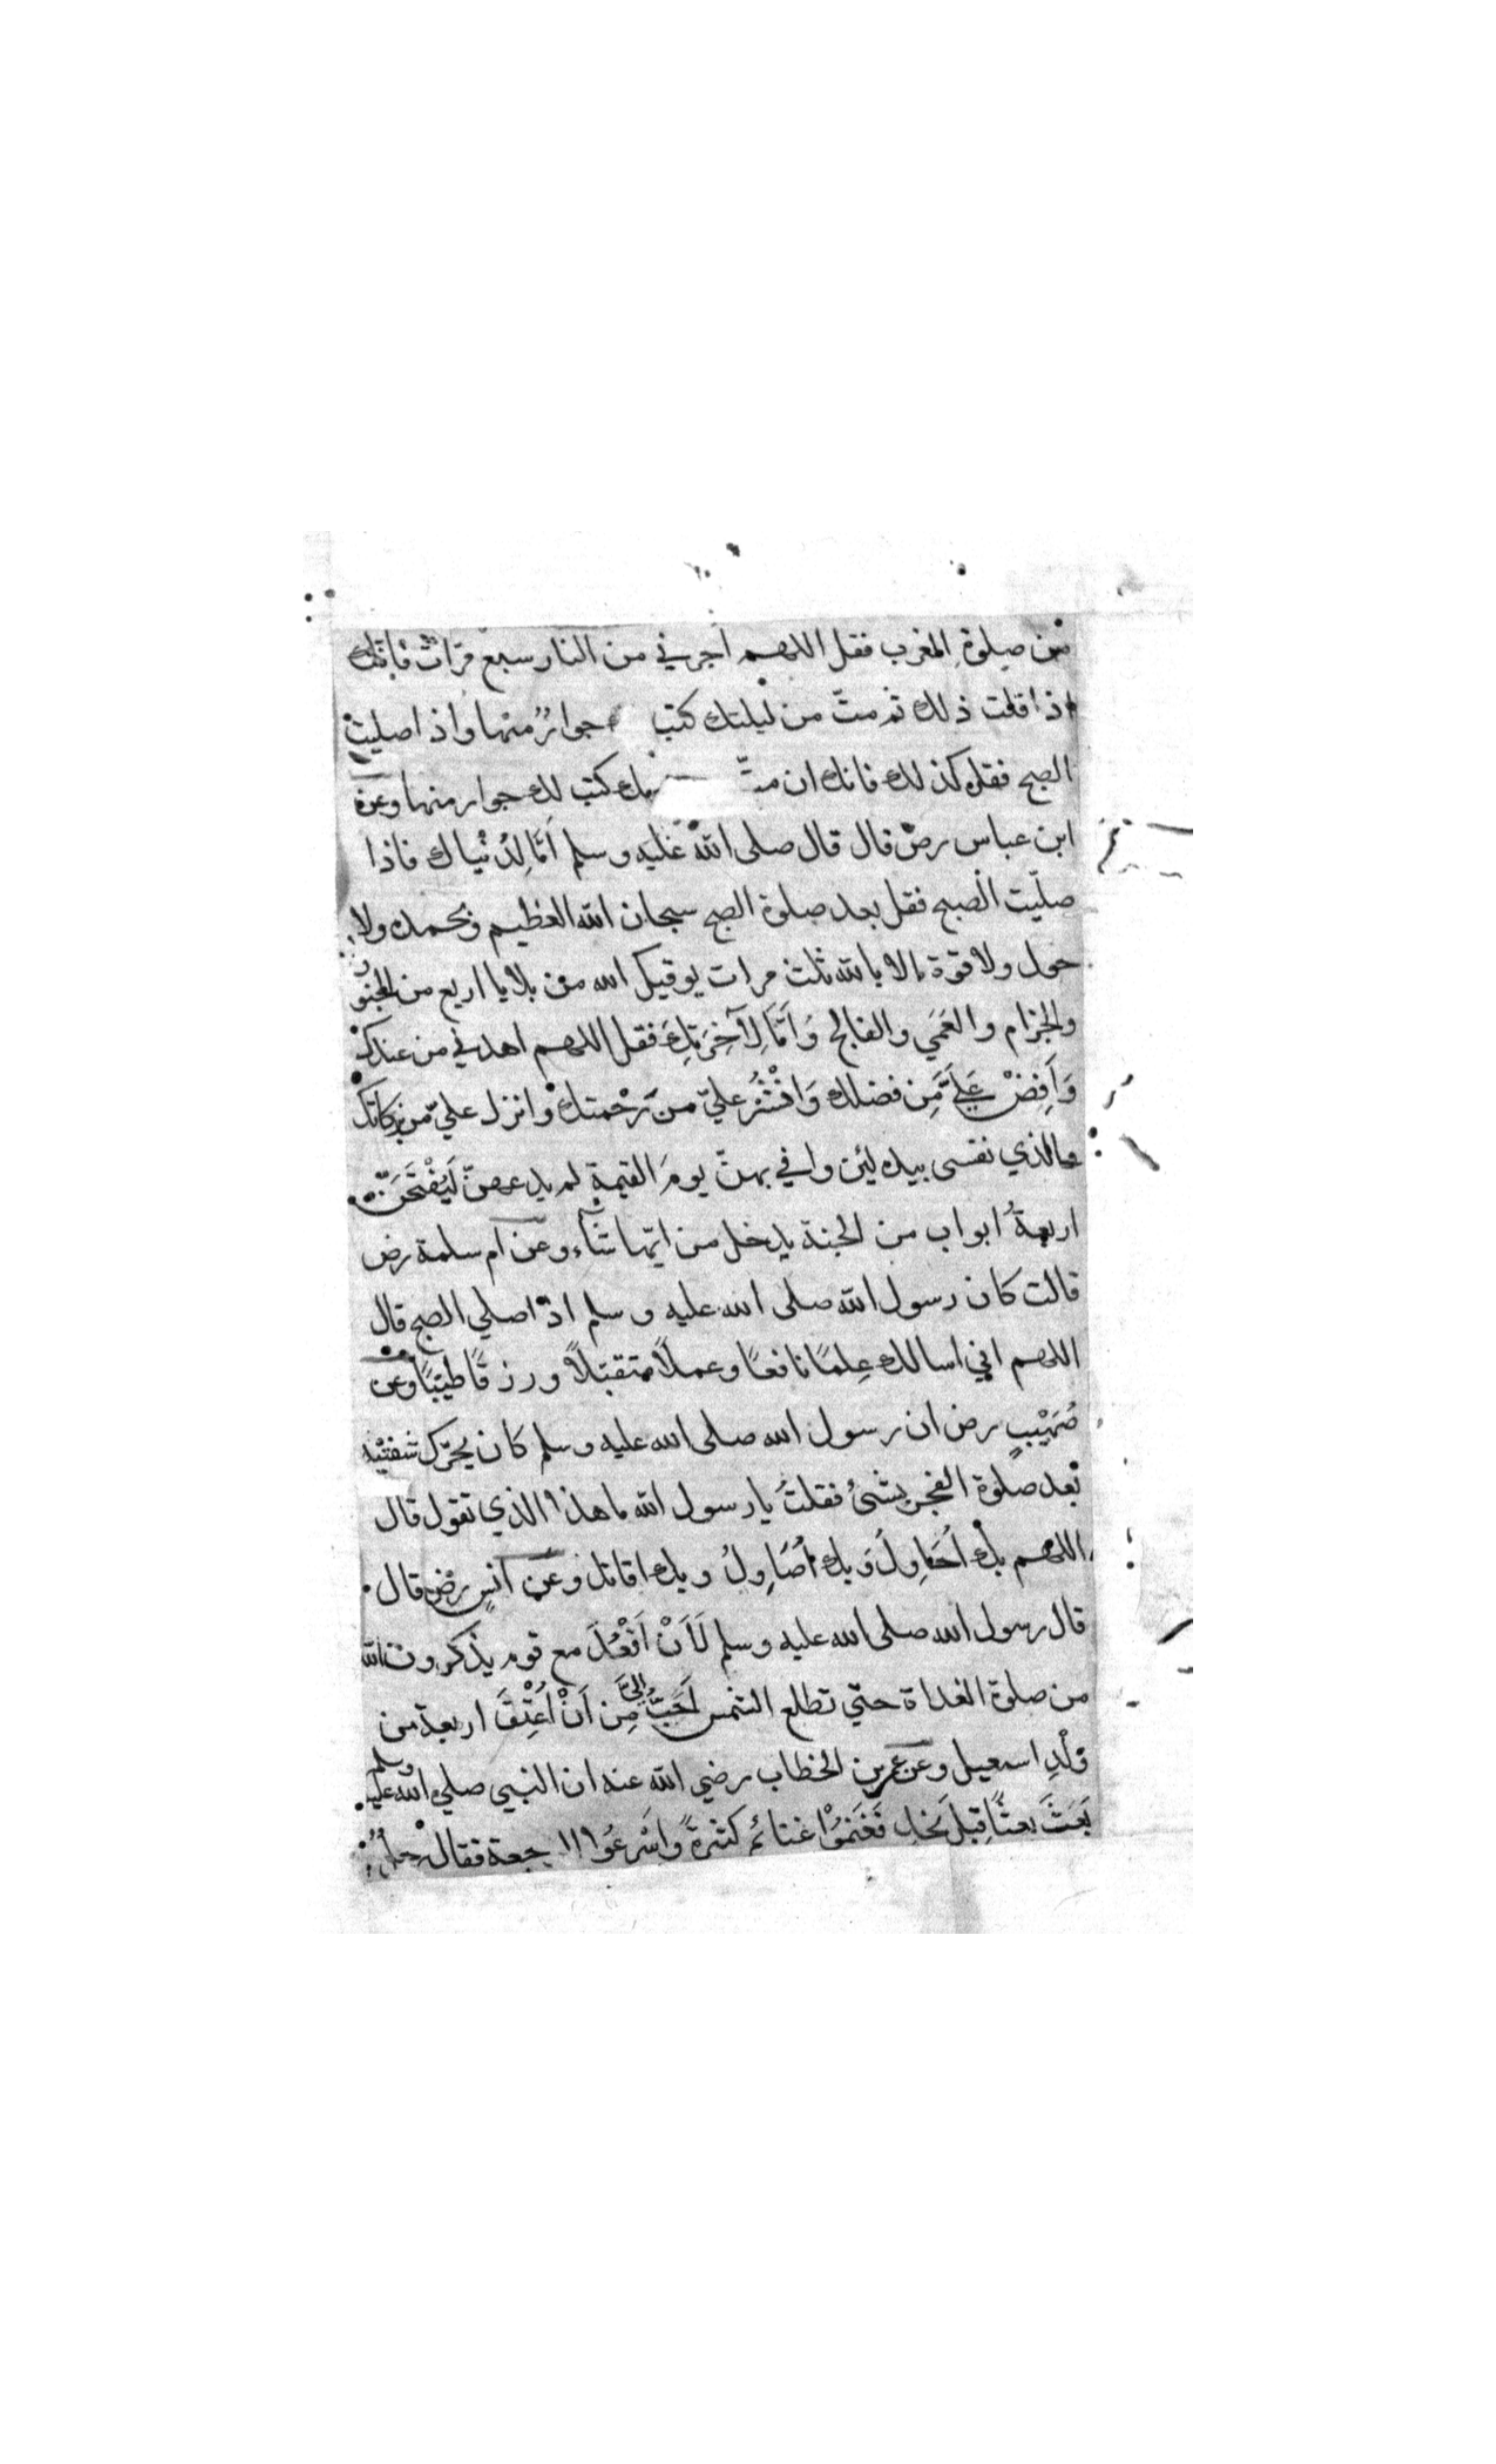 من صلوة المغرب فقل اللهم اجرني من النار سبع مرّات فانّك
اذا قلت ذلك ثم متّ من ليلتك كتب جوارٌ منها واذا صليت
الصبح فقل كذلك فانك ان متّ كتب لك جوار منها وعن
ابن عباس رض قال قال صلى الله عليه وسلم اَمَّا لِدُنْياك فاذا
صلّيت الصبح فقل بعد صلوة الصبح سبحان الله العظيم وبحمده ولا
حول ولا قوة الا بالله ثلث مرات يوقيك الله من بلايا اربع من الجنون
والجزام والعَمَي والفالج وَاَمَّا لِآخِرَتِكَ فقل اللهم اهدني من عندك
وَاَفِضْ عَلَيَّ مِن فضلك وَانْشُرْ عليّ من رَحْمتك وانزل عليّ من بركاتك
والذي نفسى بيده لئن وافي بهنّ يومَ القيمةِ لم يدعهنّ لَيُفْتَحَنّ
اربعةُ ابواب من الجنة يدخل من ايّها شآء وعن ام سلمة رض
قالت كان رسول الله صلى الله عليه وسلم اذا صلي الصبح قال
اللهم اني اسالك عِلمًا نافعًا وعملاً متقبّلاً ورزقًا طيّبًا وعن
صُهَيْبٍ رض ان رسول الله صلى الله عليه وسلم كان يحرّك شفتيْه
بعد صلوة الفجر بشئ فقلتُ يا رسول الله ما هذا الذي تقول قال
اللهم بك اُحَاوِلُ وَبك اُصَاوِلُ وبك اقاتل وعن انسٍ رض قال
قال رسول الله صلى الله عليه وسلم لَاَنْ اَقْعُدَ مع قوم يذكرون الله
من صلوة الغداة حتي تطلع الشمس اَحَبُّ اليَّ مِن اَنْ اُعْتِقَ اربعة من
وُلْدِ اسمعيل وعن عمر بن الخطاب رضي الله عنه ان النبي صلي الله عليه وسلم
بَعَثَ بعثًا قِبَلَ نجد فَغَنِمُوْا غنائم كثيرةً واَسْرَعُوا الرجعة فقال رجلٌ